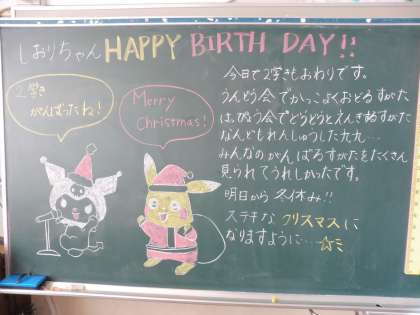 しおりちゃん HAPPY BIRTH DAY!!
2学き
がんばったね!
Merry
Christmas!
今日で2学きもおわりです。
うんどう会でかっこよくおどるすがた
はっぴょう会でどうどうとえんぎするすがた
なんどもれんしゅうした九九…
みんなのがんばるすがたをたくさん
見られてうれしかったです。
明日から冬休み!!
ステキなクリスマスに
なりますように…